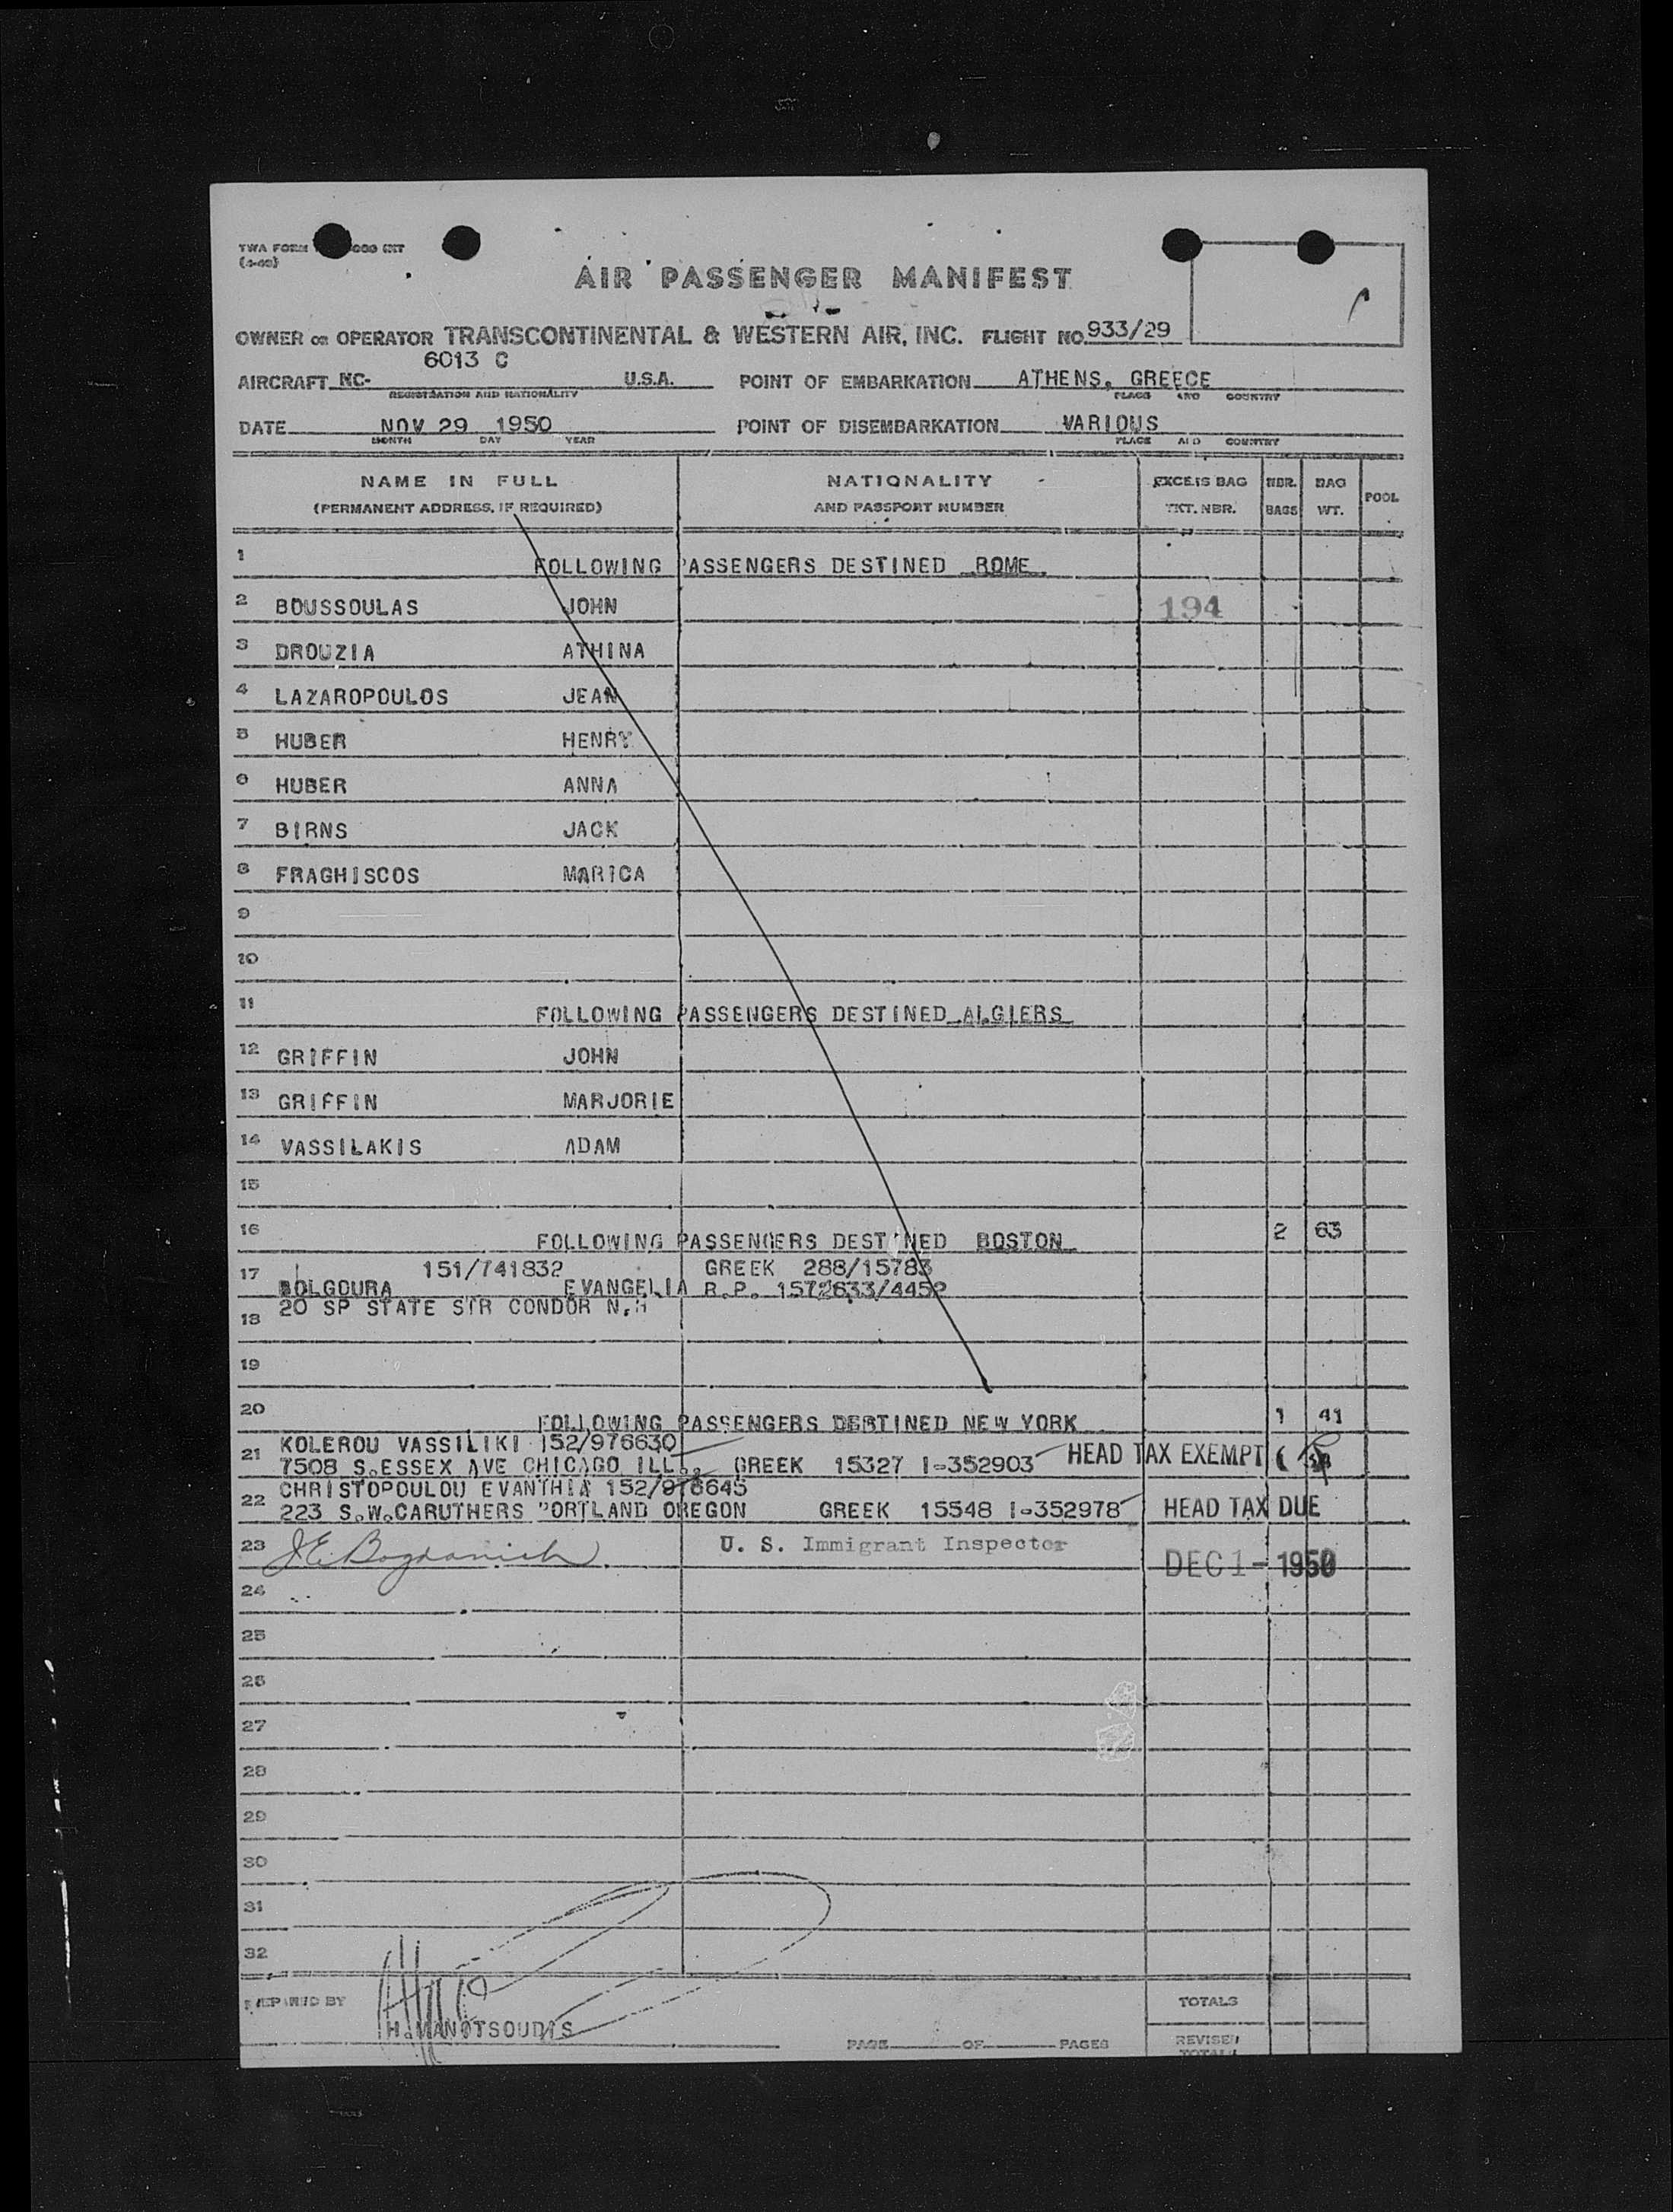 TWA FORM 000 INT
(4-46)
AIR PASSENGER MANIFEST
OWNER OR OPERATOR TRANSCONTINENTAL & WESTERN AIR, INC. FLIGHT NO. 933/29
6013 C
AIRCRAFT NC- U.S.A. POINT OF EMBARKATION ATHENS, GREECE
REGISTRATION AND NATIONALITY PLACE AND COUNTRY
DATE NOV 29 1950 POINT OF DISEMBARKATION VARIOUS
MONTH DAY YEAR PLACE AND COUNTRY
NAME IN FULL NATIONALITY EXCESS BAG NBR. BAG POOL
(PERMANENT ADDRESS, IF REQUIRED) AND PASSPORT NUMBER TKT. NBR. BAGS WT.
1 FOLLOWING PASSENGERS DESTINED ROME
2 BOUSSOULAS JOHN 194
3 DROUZIA ATHINA
4 LAZAROPOULOS JEAN
5 HUBER HENRY
6 HUBER ANNA
7 BIRNS JACK
8 FRAGHISCOS MARICA
9
10
11 FOLLOWING PASSENGERS DESTINED ALGIERS
12 GRIFFIN JOHN
13 GRIFFIN MARJORIE
14 VASSILAKIS ADAM
15
16 FOLLOWING PASSENGERS DESTINED BOSTON 2 63
17 151/741832 GREEK 288/15783
BOLGOURA EVANGELIA R.P. 1572633/4452
18 20 SP STATE STR CONDOR N.H
19
20 FOLLOWING PASSENGERS DESTINED NEW YORK 1 41
21 KOLEROU VASSILIKI 152/976630
7508 S.ESSEX AVE CHICAGO ILL.. GREEK 15327 I-352903 HEAD TAX EXEMPT
22 CHRISTOPOULOU EVANTHIA 152/976645
223 S.W.CARUTHERS PORTLAND OREGON GREEK 15548 I-352978 HEAD TAX DUE
23 J.E. Bogdanich U. S. Immigrant Inspector DEC 1 - 1950
24
25
26
27
28
29
30
31
32
PREPARED BY TOTALS
H.MANOTSOUDIS
PAGE OF PAGES REVISED
TOTALS